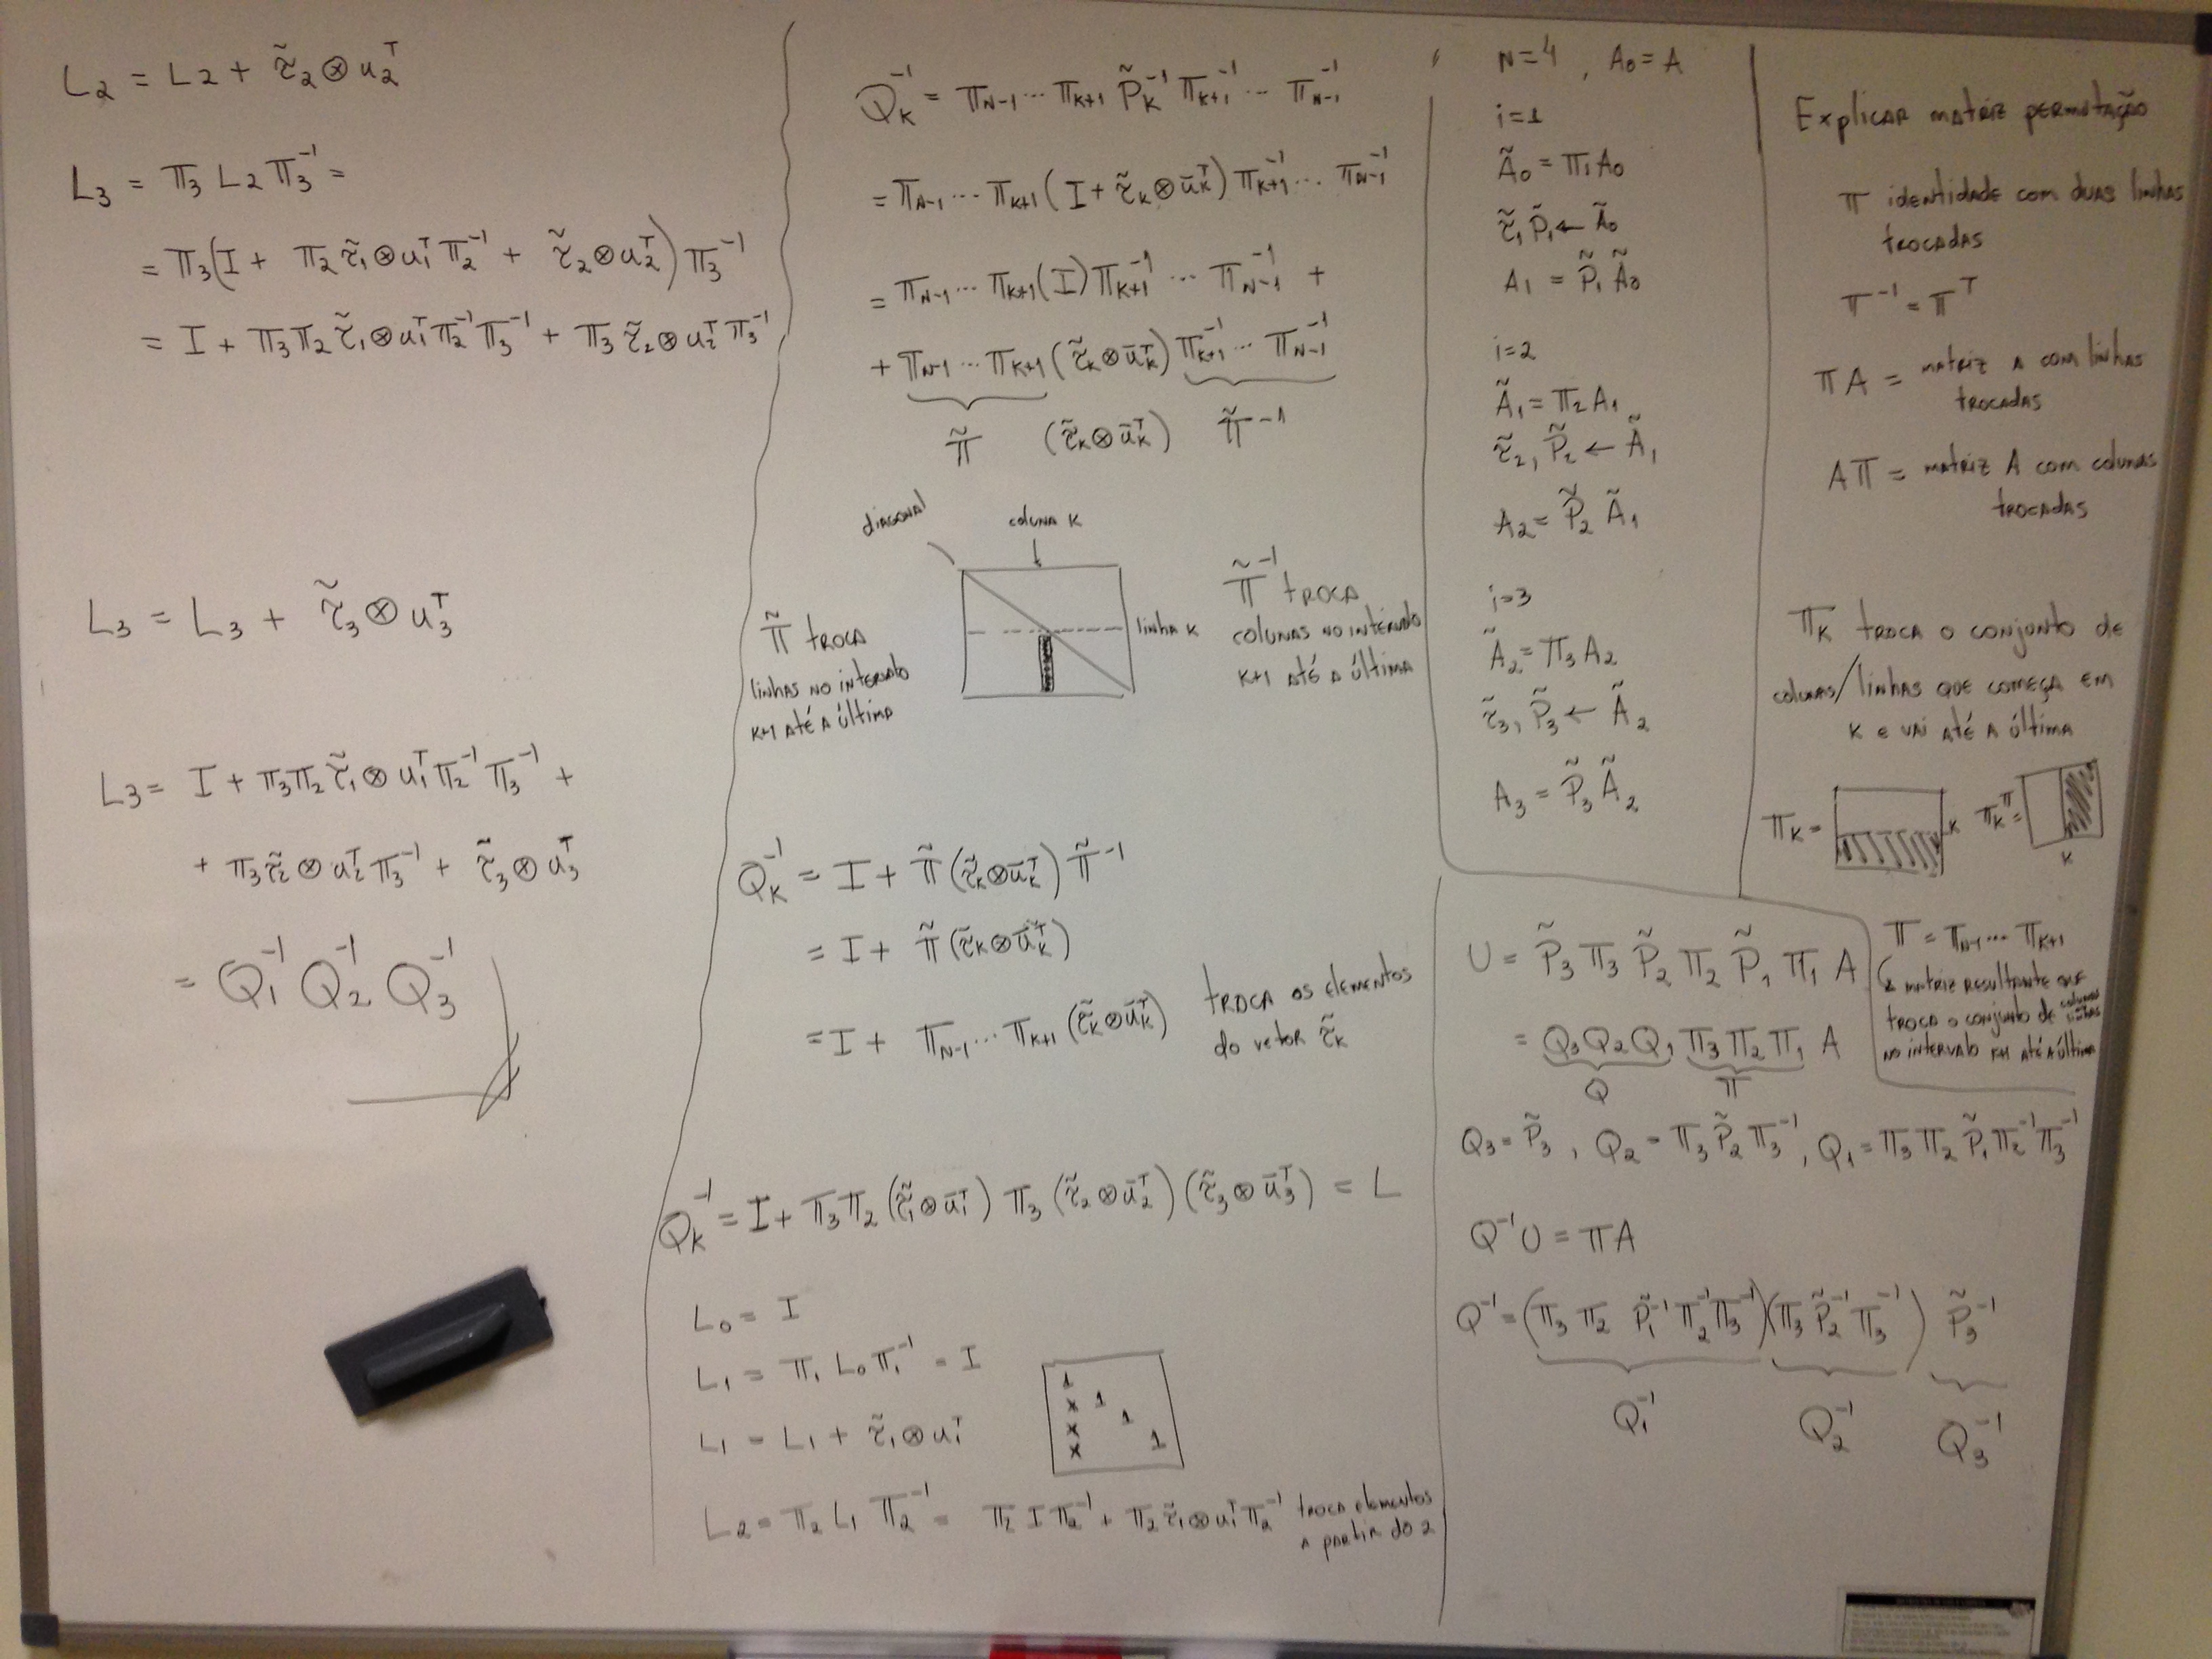 L₂ = L2 + τ̃₂⊗u₂ᵀ
L₃ = π₃ L₂ π₃⁻¹ =
= π₃(I + π₂ τ̃₁⊗u₁ᵀ π₂⁻¹ + τ̃₂⊗u₂ᵀ) π₃⁻¹
= I + π₃π₂ τ̃₁⊗u₁ᵀ π₂⁻¹ π₃⁻¹ + π₃ τ̃₂⊗u₂ᵀ π₃⁻¹
L₃ = L₃ + τ̃₃⊗u₃ᵀ
L₃ = I + π₃π₂ τ̃₁⊗u₁ᵀ π₂⁻¹ π₃⁻¹ +
+ π₃ τ̃₂⊗u₂ᵀ π₃⁻¹ + τ̃₃⊗u₃ᵀ
= Q₁⁻¹ Q₂⁻¹ Q₃⁻¹
Q_K⁻¹ = π_{N-1} ... π_{K+1} P̃_K⁻¹ π_{K+1}⁻¹ ... π_{N-1}⁻¹
= π_{N-1} ... π_{K+1} (I + τ̃_K⊗ū_Kᵀ) π_{K+1}⁻¹ ... π_{N-1}⁻¹
= π_{N-1} ... π_{K+1} (I) π_{K+1}⁻¹ ... π_{N-1}⁻¹ +
+ π_{N-1} ... π_{K+1} (τ̃_K⊗ū_Kᵀ) π_{K+1}⁻¹ ... π_{N-1}⁻¹
π̃ (τ̃_K⊗ū_Kᵀ) π̃⁻¹
diagonal
coluna K
linha K
π̃ troca
linhas no intervalo
K+1 até a última
π̃⁻¹ troca
colunas no intervalo
K+1 até a última
Q_K⁻¹ = I + π̃ (τ̃_K⊗ū_Kᵀ) π̃⁻¹
= I + π̃ (τ̃_K⊗ū_Kᵀ)
= I + π_{N-1} ... π_{K+1} (τ̃_K⊗ū_Kᵀ)
troca os elementos
do vetor τ̃_K
Q_K⁻¹ = I + π₃π₂ (τ̃₁⊗ū₁ᵀ) π₃ (τ̃₂⊗ū₂ᵀ) (τ̃₃⊗ū₃ᵀ) = L
L₀ = I
L₁ = π₁ L₀ π₁⁻¹ = I
L₁ = L₁ + τ̃₁⊗u₁ᵀ
1
x 1
x 1
x 1
L₂ = π₂ L₁ π₂⁻¹ = π₂ I π₂⁻¹ + π₂ τ̃₁⊗u₁ᵀ π₂⁻¹
troca elementos
a partir do 2
N=4 , A₀ = A
i=1
Ã₀ = π₁A₀
τ̃₁ P̃₁ ← Ã₀
A₁ = P̃₁ Ã₀
i=2
Ã₁ = π₂A₁
τ̃₂, P̃₂ ← Ã₁
A₂ = P̃₂ Ã₁
i=3
Ã₂ = π₃A₂
τ̃₃, P̃₃ ← Ã₂
A₃ = P̃₃ Ã₂
Explicar matriz permutação
π identidade com duas linhas
trocadas
π⁻¹ = πᵀ
πA = matriz A com linhas
trocadas
Aπ = matriz A com colunas
trocadas
π_K troca o conjunto de
colunas/linhas que começa em
K e vai até a última
π_K =
K
π_Kᵀ =
K
π = π_{N-1} ... π_{K+1}
matriz resultante que
troca o conjunto de colunas linhas
no intervalo K+1 até a última
U = P̃₃ π₃ P̃₂ π₂ P̃₁ π₁ A
= Q₃Q₂Q₁ π₃π₂π₁ A
Q π
Q₃ = P̃₃ , Q₂ = π₃ P̃₂ π₃⁻¹ , Q₁ = π₃π₂ P̃₁ π₂⁻¹ π₃⁻¹
Q⁻¹U = πA
Q⁻¹ = (π₃ π₂ P̃₁⁻¹ π₂⁻¹ π₃⁻¹)(π₃ P̃₂⁻¹ π₃⁻¹) P̃₃⁻¹
Q₁⁻¹ Q₂⁻¹ Q₃⁻¹